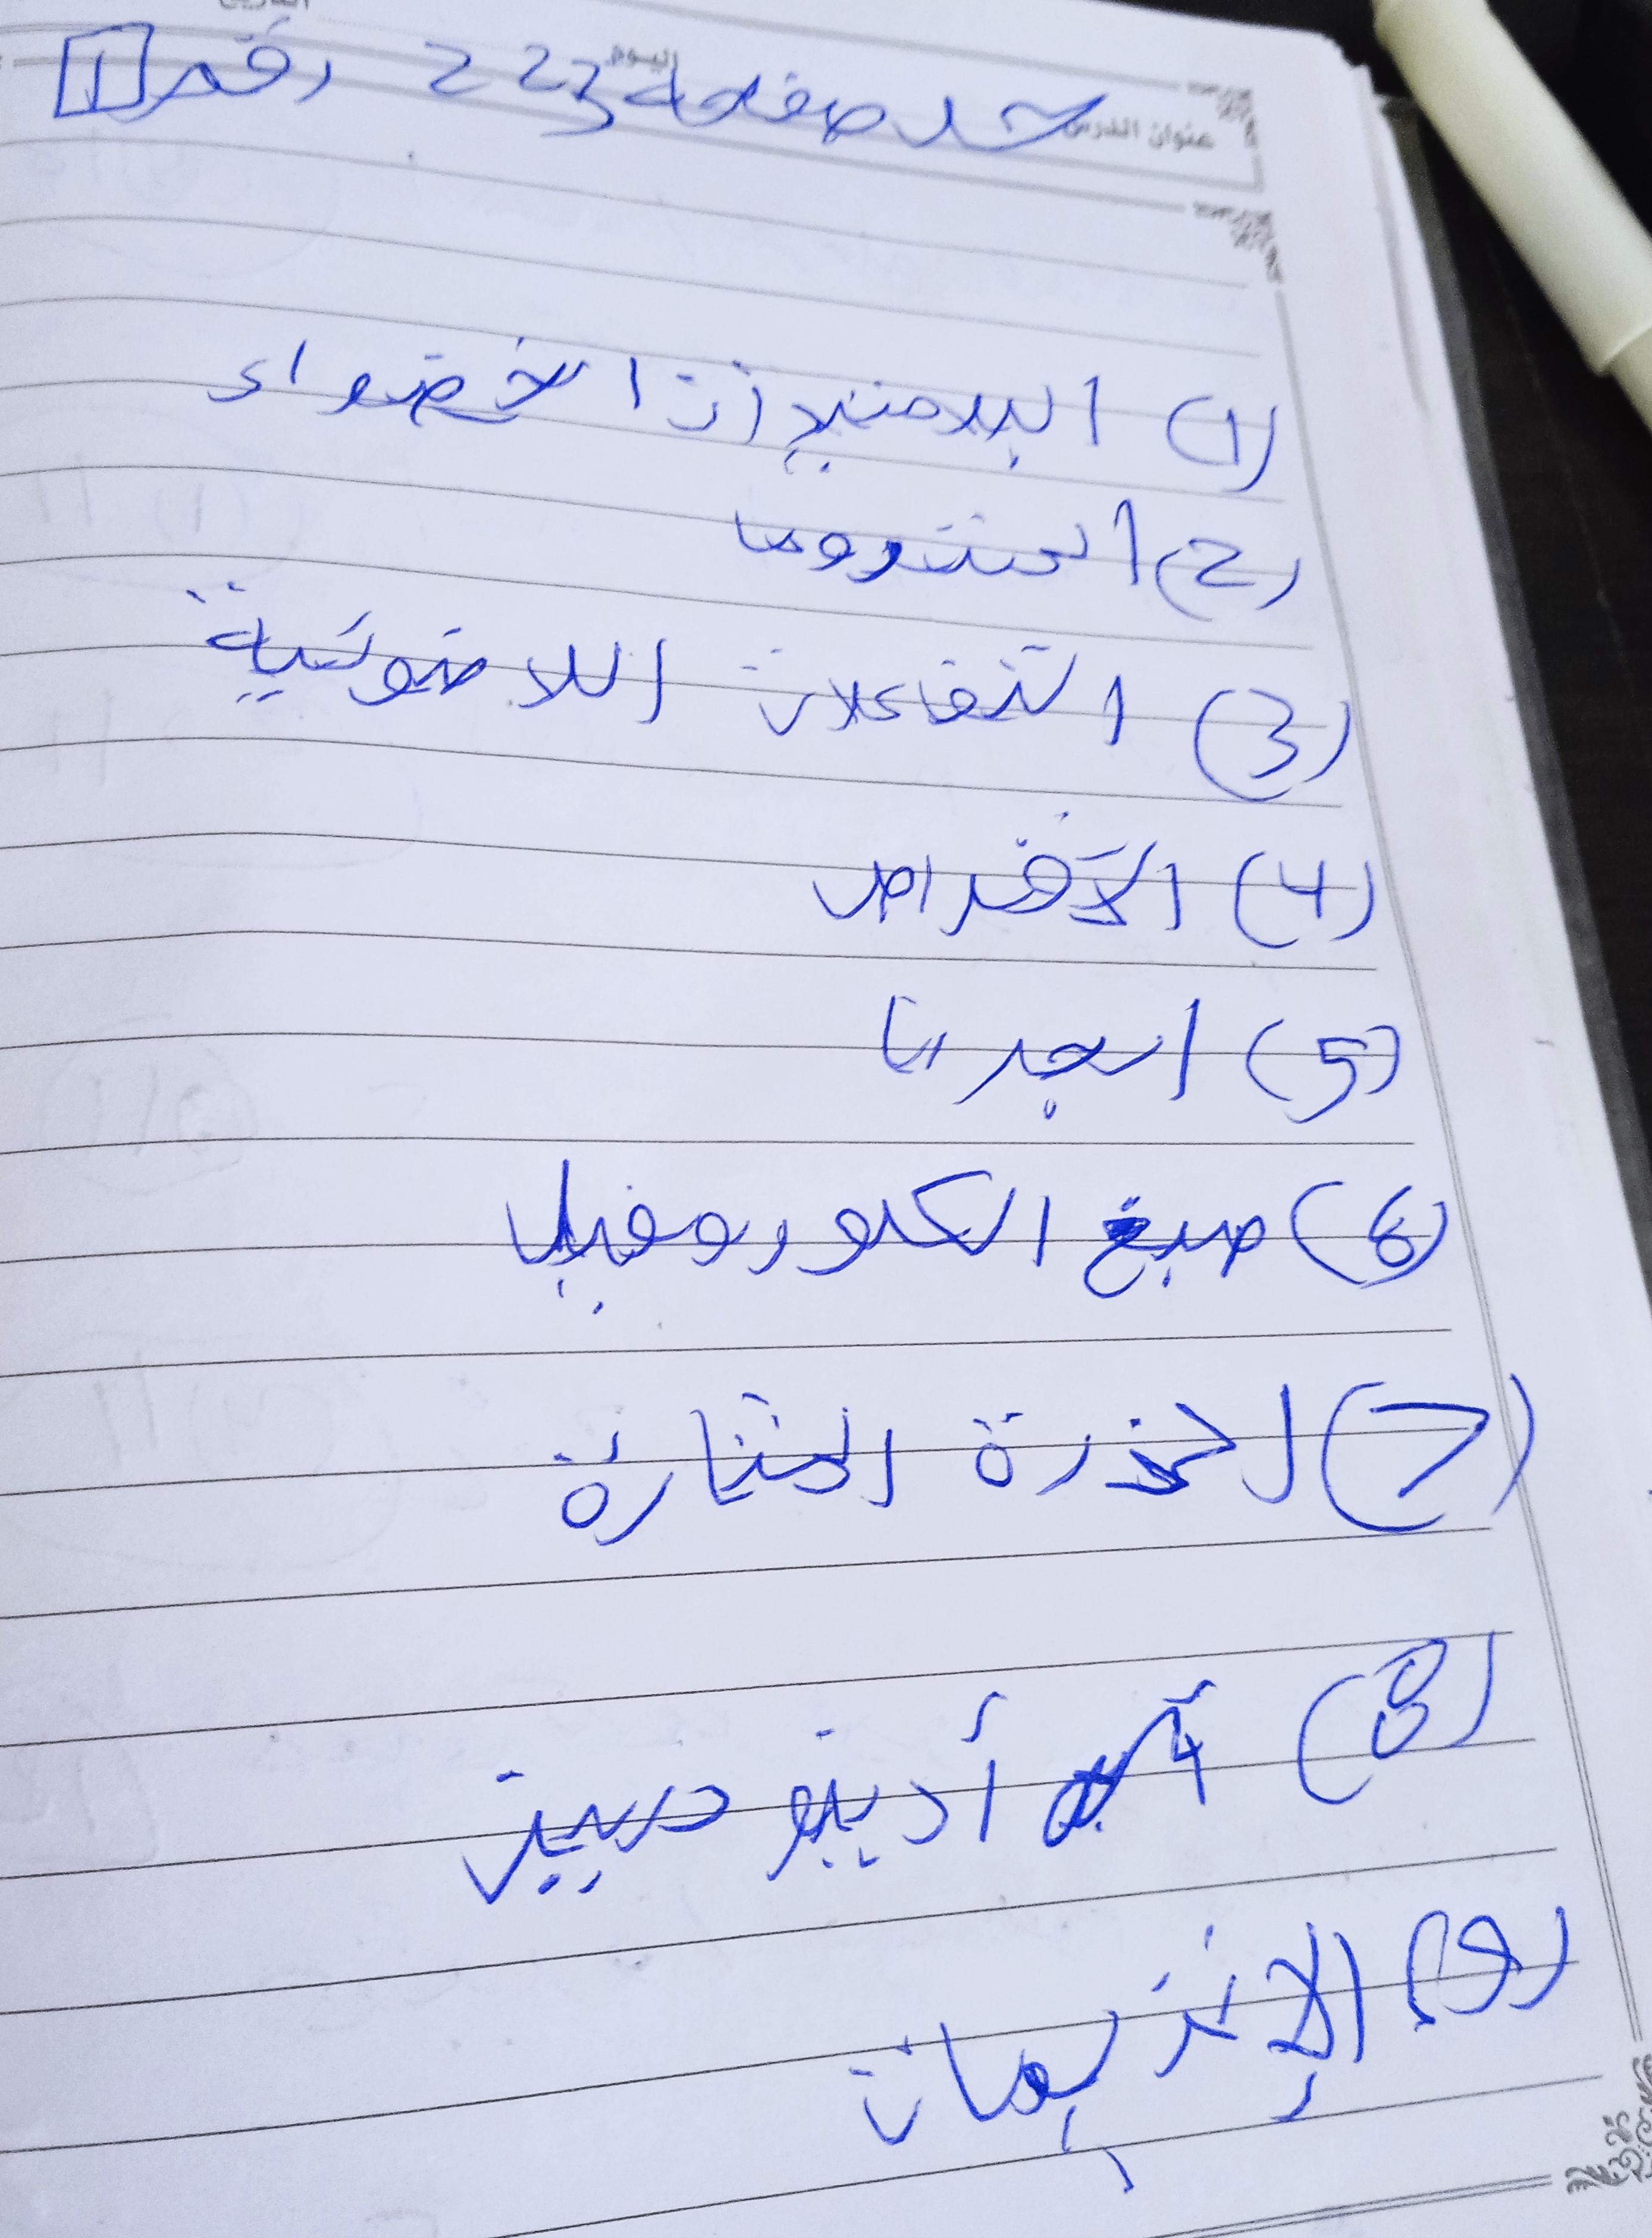 حل صفحة 223 رقم 1
عنوان الدرس
اليوم
(1) البلاستيدات الخضراء
(2) الستروما
(3) التفاعلات اللاضوئية
(4) الأقراص
(5) الجرانا
(6) صبغ الكلوروفيل
(7) الذرة المثارة
(8) أدينوسين
(9) الإنزيمات